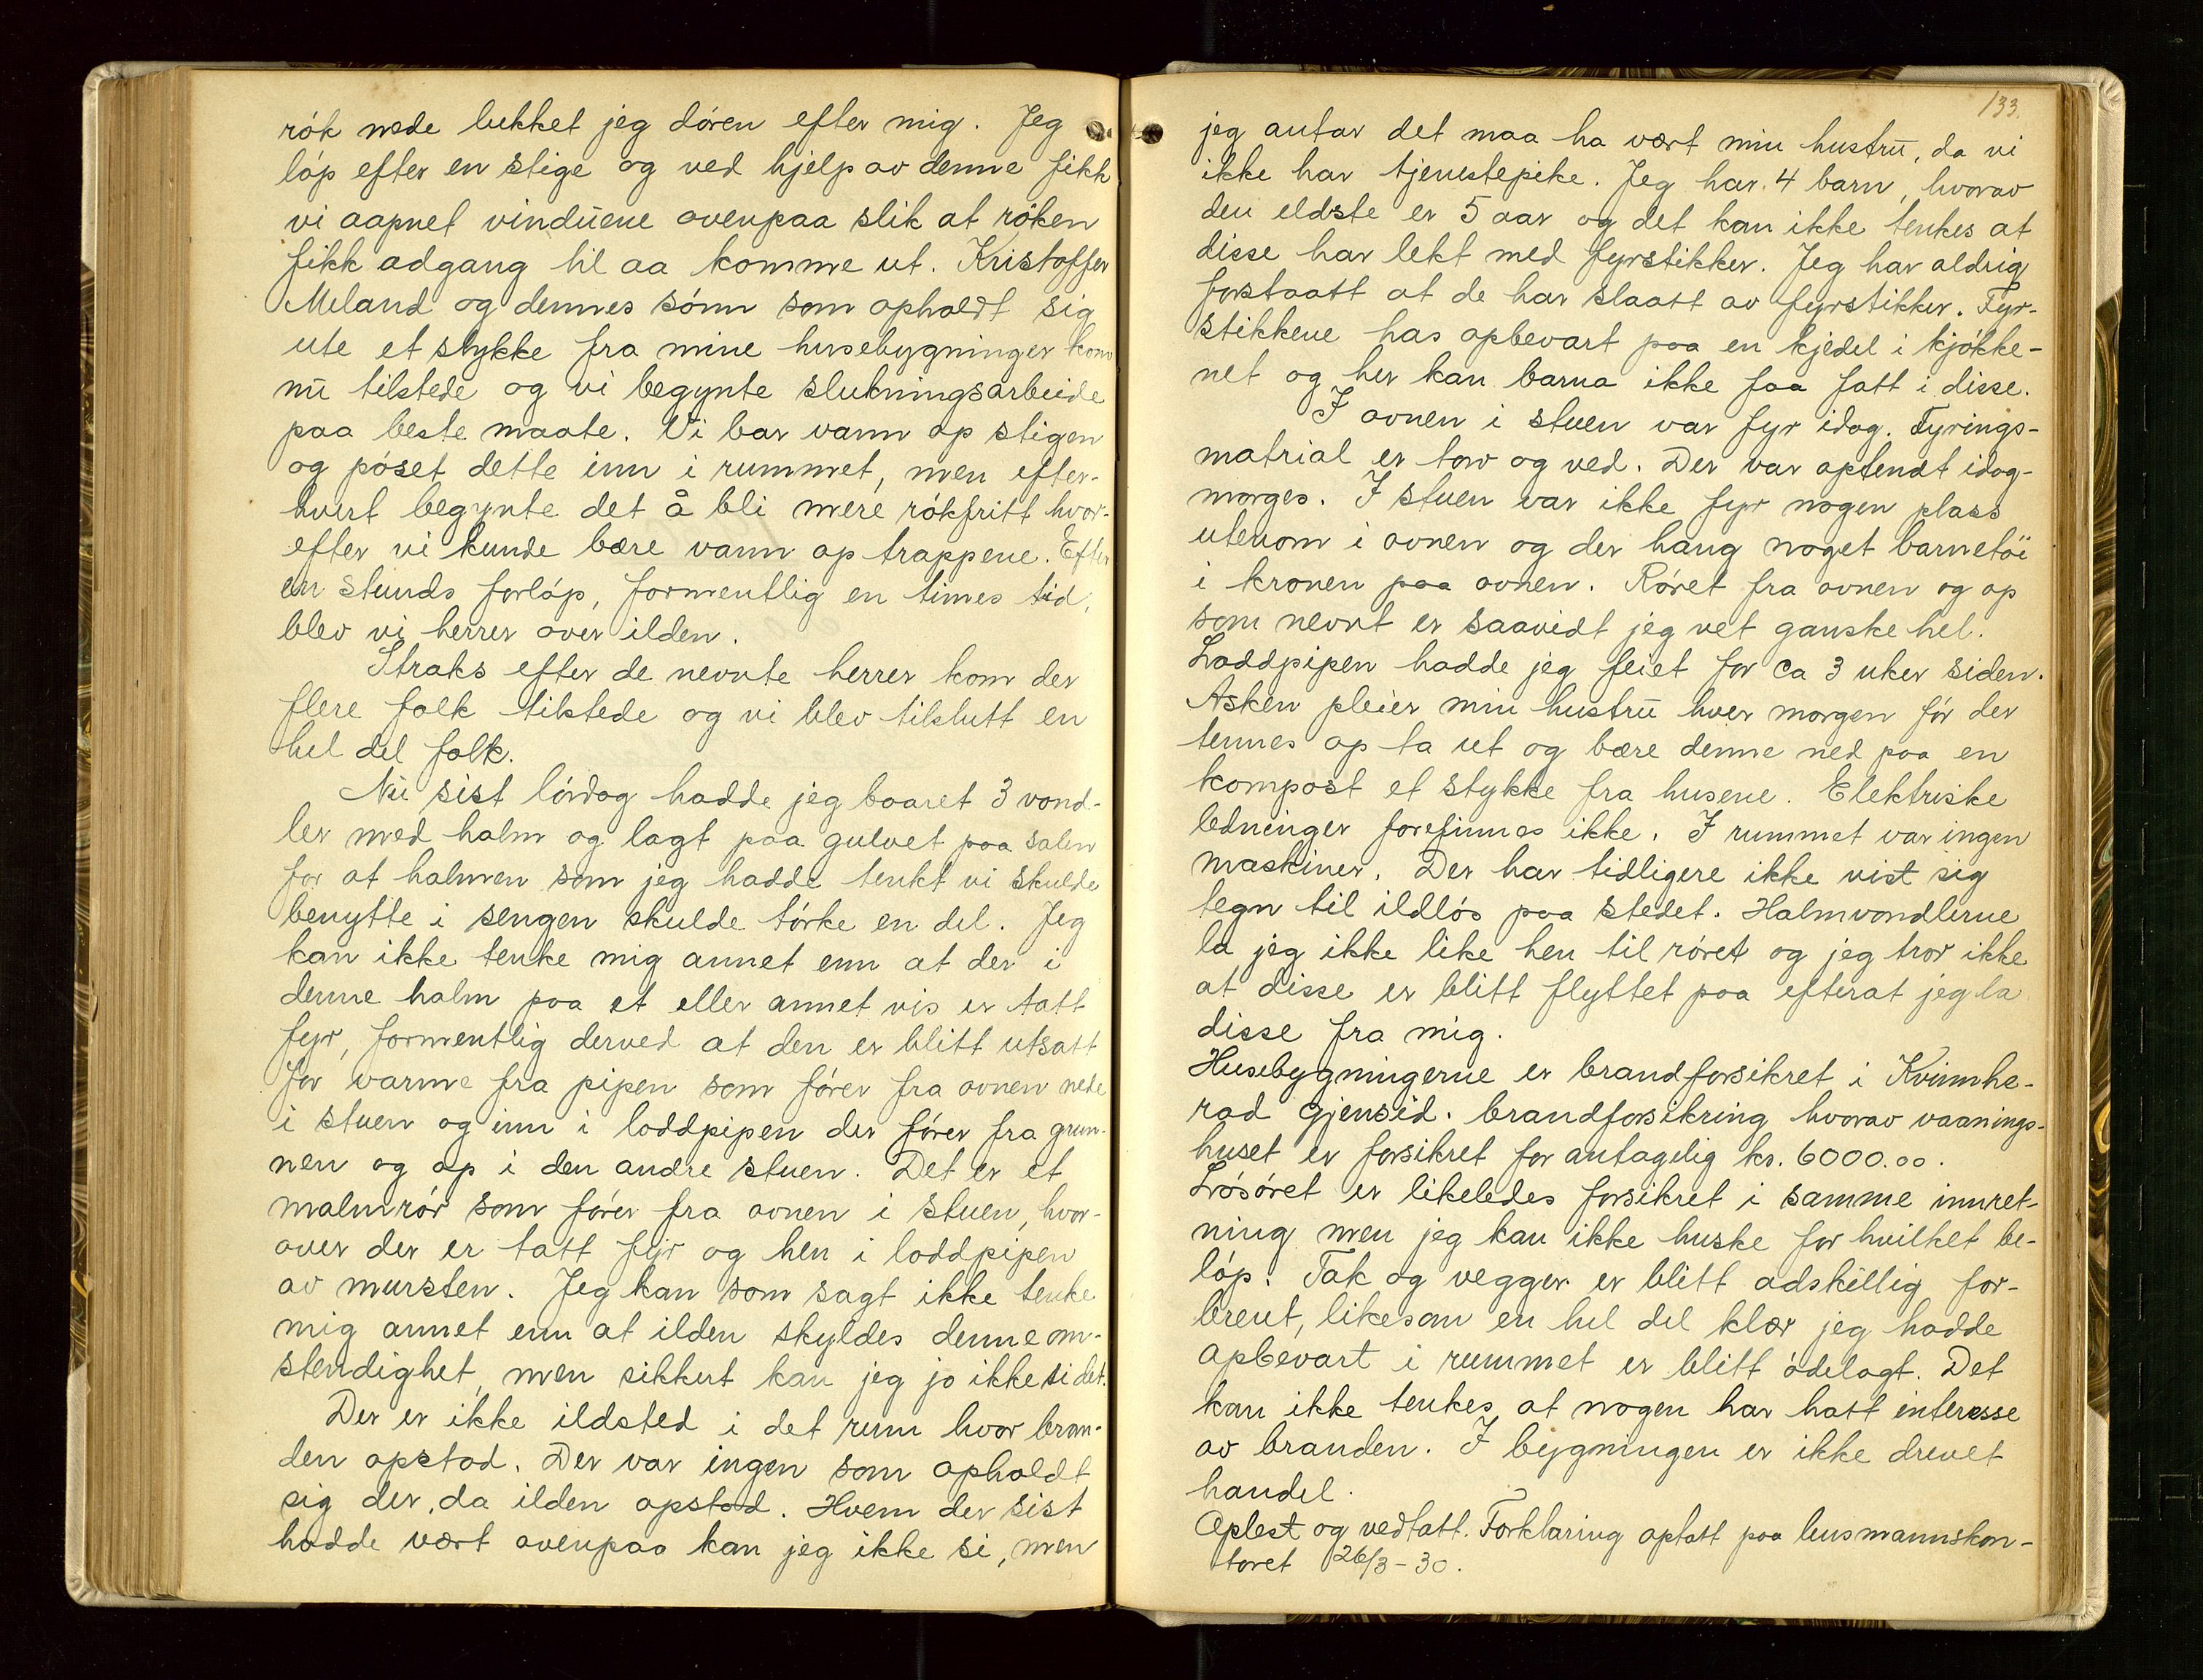 rök nede lukket jeg dören efter mig. Jeg
löp efter en stige og ved hjelp av denne fikk
vi aapnet vinduene ovenpaa slik at röken
fikk adgang til aa komme ut. Kristoffer
Meland og dennes sönn som opholdt sig
ute et stykke fra mine husebygninger kom
nu tilstede og vi begynte slukningsarbeide
paa beste maate. Vi bar vann op stigen
og pöset dette inn i rummet, men efter-
hvert begynte det å bli mere rökfritt hvor-
efter vi kunde bære vann op trappene. Efter
en stunds forlöp, formentlig en times tid,
blev vi herrer over ilden.
Straks efter de nevnte herrer kom der
flere folk tilstede og vi blev tilslutt en
hel del folk.
Nu sist lördag hadde jeg baaret 3 vond-
ler med halm og lagt paa gulvet paa salen
for at halmen som jeg hadde tenkt vi skulde
benytte i sengen skulde törke en del. Jeg
kan ikke tenke mig annet enn at der i
denne halm paa et eller annet vis er tatt
fyr, formentlig derved at den er blitt utsatt
for varme fra pipen som förer fra ovnen nede
i stuen og inn i loddpipen der förer fra grun-
nen og op i den andre stuen. Det er et
malmrör som förer fra ovnen i stuen, hvor-
over der er tatt fyr og hen i loddpipen
av mursten. Jeg kan som sagt ikke tenke
mig annet enn at ilden skyldes denne om-
stendighet, men sikkert kan jeg jo ikke si det.
Der er ikke ildsted i det rum hvor bran-
den opstod. Der var ingen som opholdt
sig der, da ilden opstod. Hvem der sist
hadde vært ovenpaa kan jeg ikke si, men
133.
jeg antar det maa ha vært min hustru, da vi
ikke har tjenestepike. Jeg har 4 barn, hvorav
den eldste er 5 aar og det kan ikke tenkes at
disse har lekt med fyrstikker. Jeg har aldrig
forstaatt at de har slaatt av fyrstikker. Fyr-
stikkene has opbevart paa en kjedel i kjökke-
net og her kan barna ikke faa fatt i disse.
I ovnen i stuen var fyr idag. Fyrings-
matrial er torv og ved. Der var optendt idag-
morges. I stuen var ikke fyr nogen plass
utenom i ovnen og der hang noget barnetöi
i kronen paa ovnen. Röret fra ovnen og op
som nevnt er saavidt jeg vet ganske hel.
Loddpipen hadde jeg feiet for ca 3 uker siden.
Asken pleier min hustru hver morgen för der
tennes op ta ut og bære denne ned paa en
kompost et stykke fra husene. Elektriske
ledninger forefinnes ikke. I rummet var ingen
maskiner. Der har tidligere ikke vist sig
tegn til ildlös paa stedet. Halmvondlerne
la jeg ikke like hen til röret og jeg tror ikke
at disse er blitt flyttet paa efterat jeg la
disse fra mig.
Husebygningerne er brandforsikret i Kvinnhe-
rad Gjensid. brandforsikring hvorav vaanings-
huset er forsikret for antagelig kr. 6000.00.
Lösöret er likeledes forsikret i samme innret-
ning men jeg kan ikke huske for hvilket be-
löp. Tak og vegger er blitt adskillig for-
brent, likesom en hel del klær jeg hadde
opbevart i rummet er blitt ödelagt. Det
kan ikke tenkes at nogen har hatt interesse
av branden. I bygningen er ikke drevet
handel.
Oplest og vedtatt. Forklaring optatt paa lensmannskon-
toret 26/3-30.